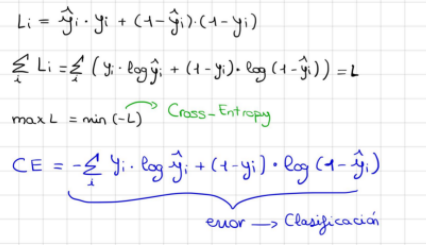 Li = ŷi · yi + (1-ŷi)·(1-yi)
∑i Li = ∑i (yi · log ŷi + (1-yi) · log (1-ŷi)) = L
max L = min (-L) → Cross-Entropy
CE = -∑i yi · log ŷi + (1-yi) · log (1-ŷi)
error → Clasificación